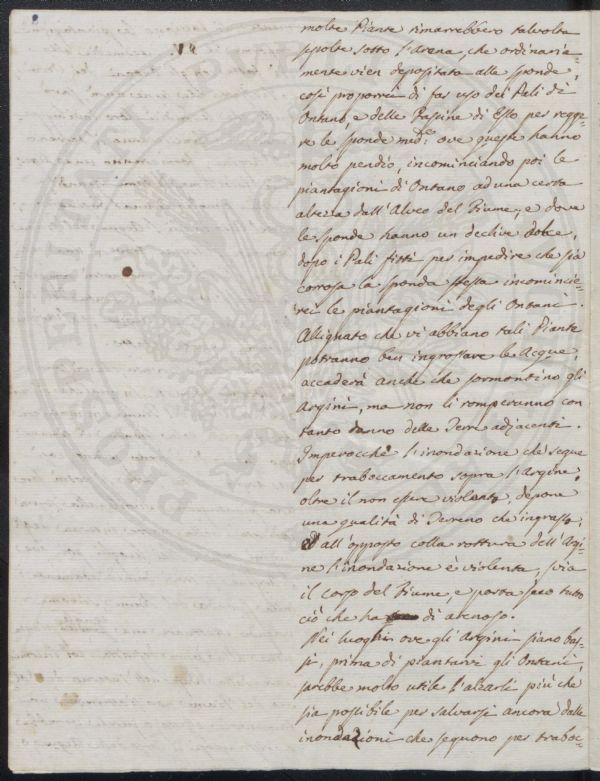 molte Piante rimarrebbero talvolta
sepolte sotto l'Arena, che ordinaria=
mente vien depositata alle sponde,
così proporrei di far uso dei Pali di
Ontano, e delle Fascine di Esso per regge=
re le sponde med.e ove queste hanno
molto pendio, incominciando poi le
piantagioni di Ontano ad una certa
altezza dall'Alveo del Fiume, e dove
le sponde hanno un declive dolce,
dopo i Pali fitti per impedire che sia
corrosa la sponda stessa incomincie=
rei le piantagioni degli Ontani.
Allignato che vi abbiano tali Piante
potranno ben ingrossare le Acque,
accaderà anche che sormontino gli
Argini, ma non li romperanno con
tanto danno delle Terre adjacenti.
Imperocchè l'inondazione che segue
per traboccamento sopra l'Argine,
oltre il non essere violenta, depone
una qualità di Terreno che ingrassa;
ed all'opposto colla rottura dell'Argi=
ne l'inondazione è violenta, svia
il corso del Fiume, e porta seco tutto
ciò che ha di arenoso.
Nei luoghi ove gli Argini siano bas=
si, prima di piantarvi gli Ontani,
sarebbe molto utile l'alzarli più che
sia possibile per salvarsi ancora dalle
inondazioni che seguono per traboc=
PROSPERITATI PUBLICAE